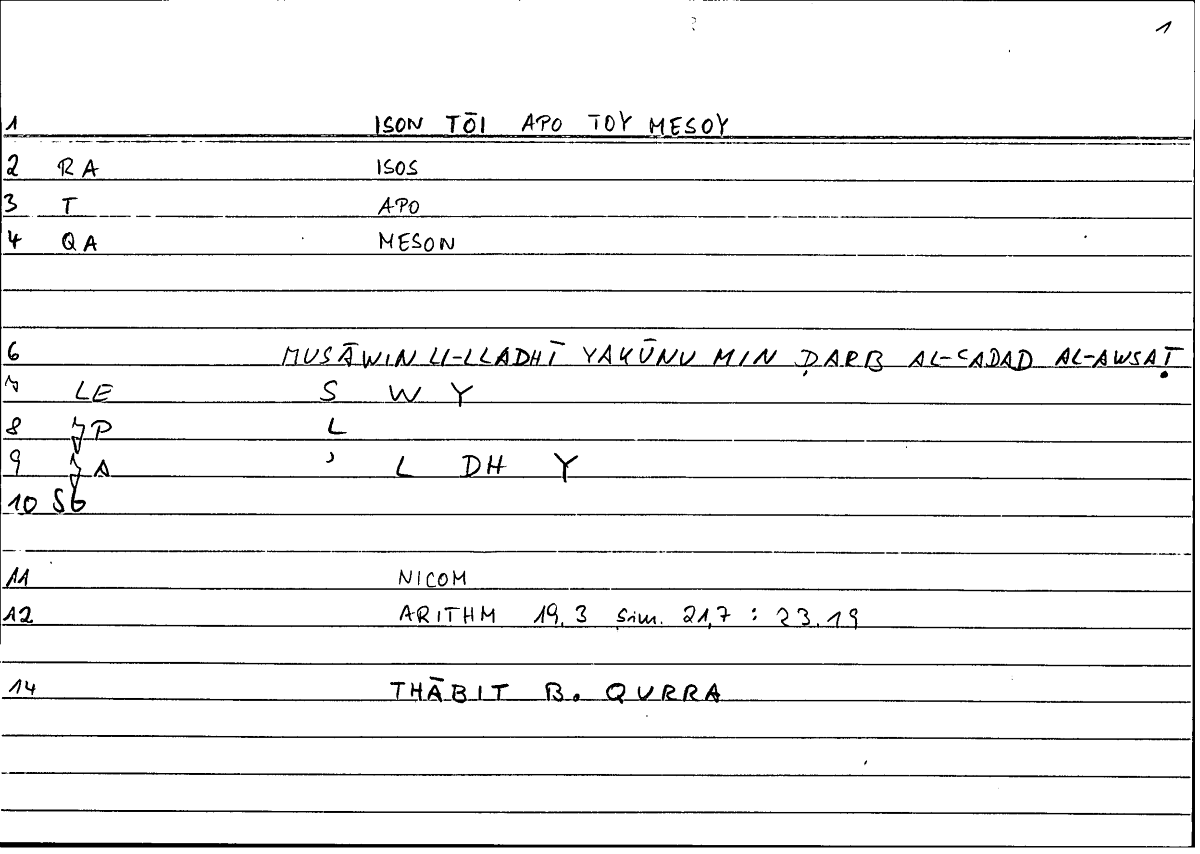 1
1 ISON TŌI APO TOY MESOY
2 RA ISOS
3 T APO
4 QA MESON
6 MUSĀWIN LI-LLADHĪ YAKŪNU MIN ḌARB AL-ʿADAD AL-AWSAṬ
7 LE S W Y
8 P L
9 A ʾ L DH Y
10 SG
11 NICOM
12 ARITHM 19.3 sim. 21,7 : 23.19
14 THĀBIT B. QURRA